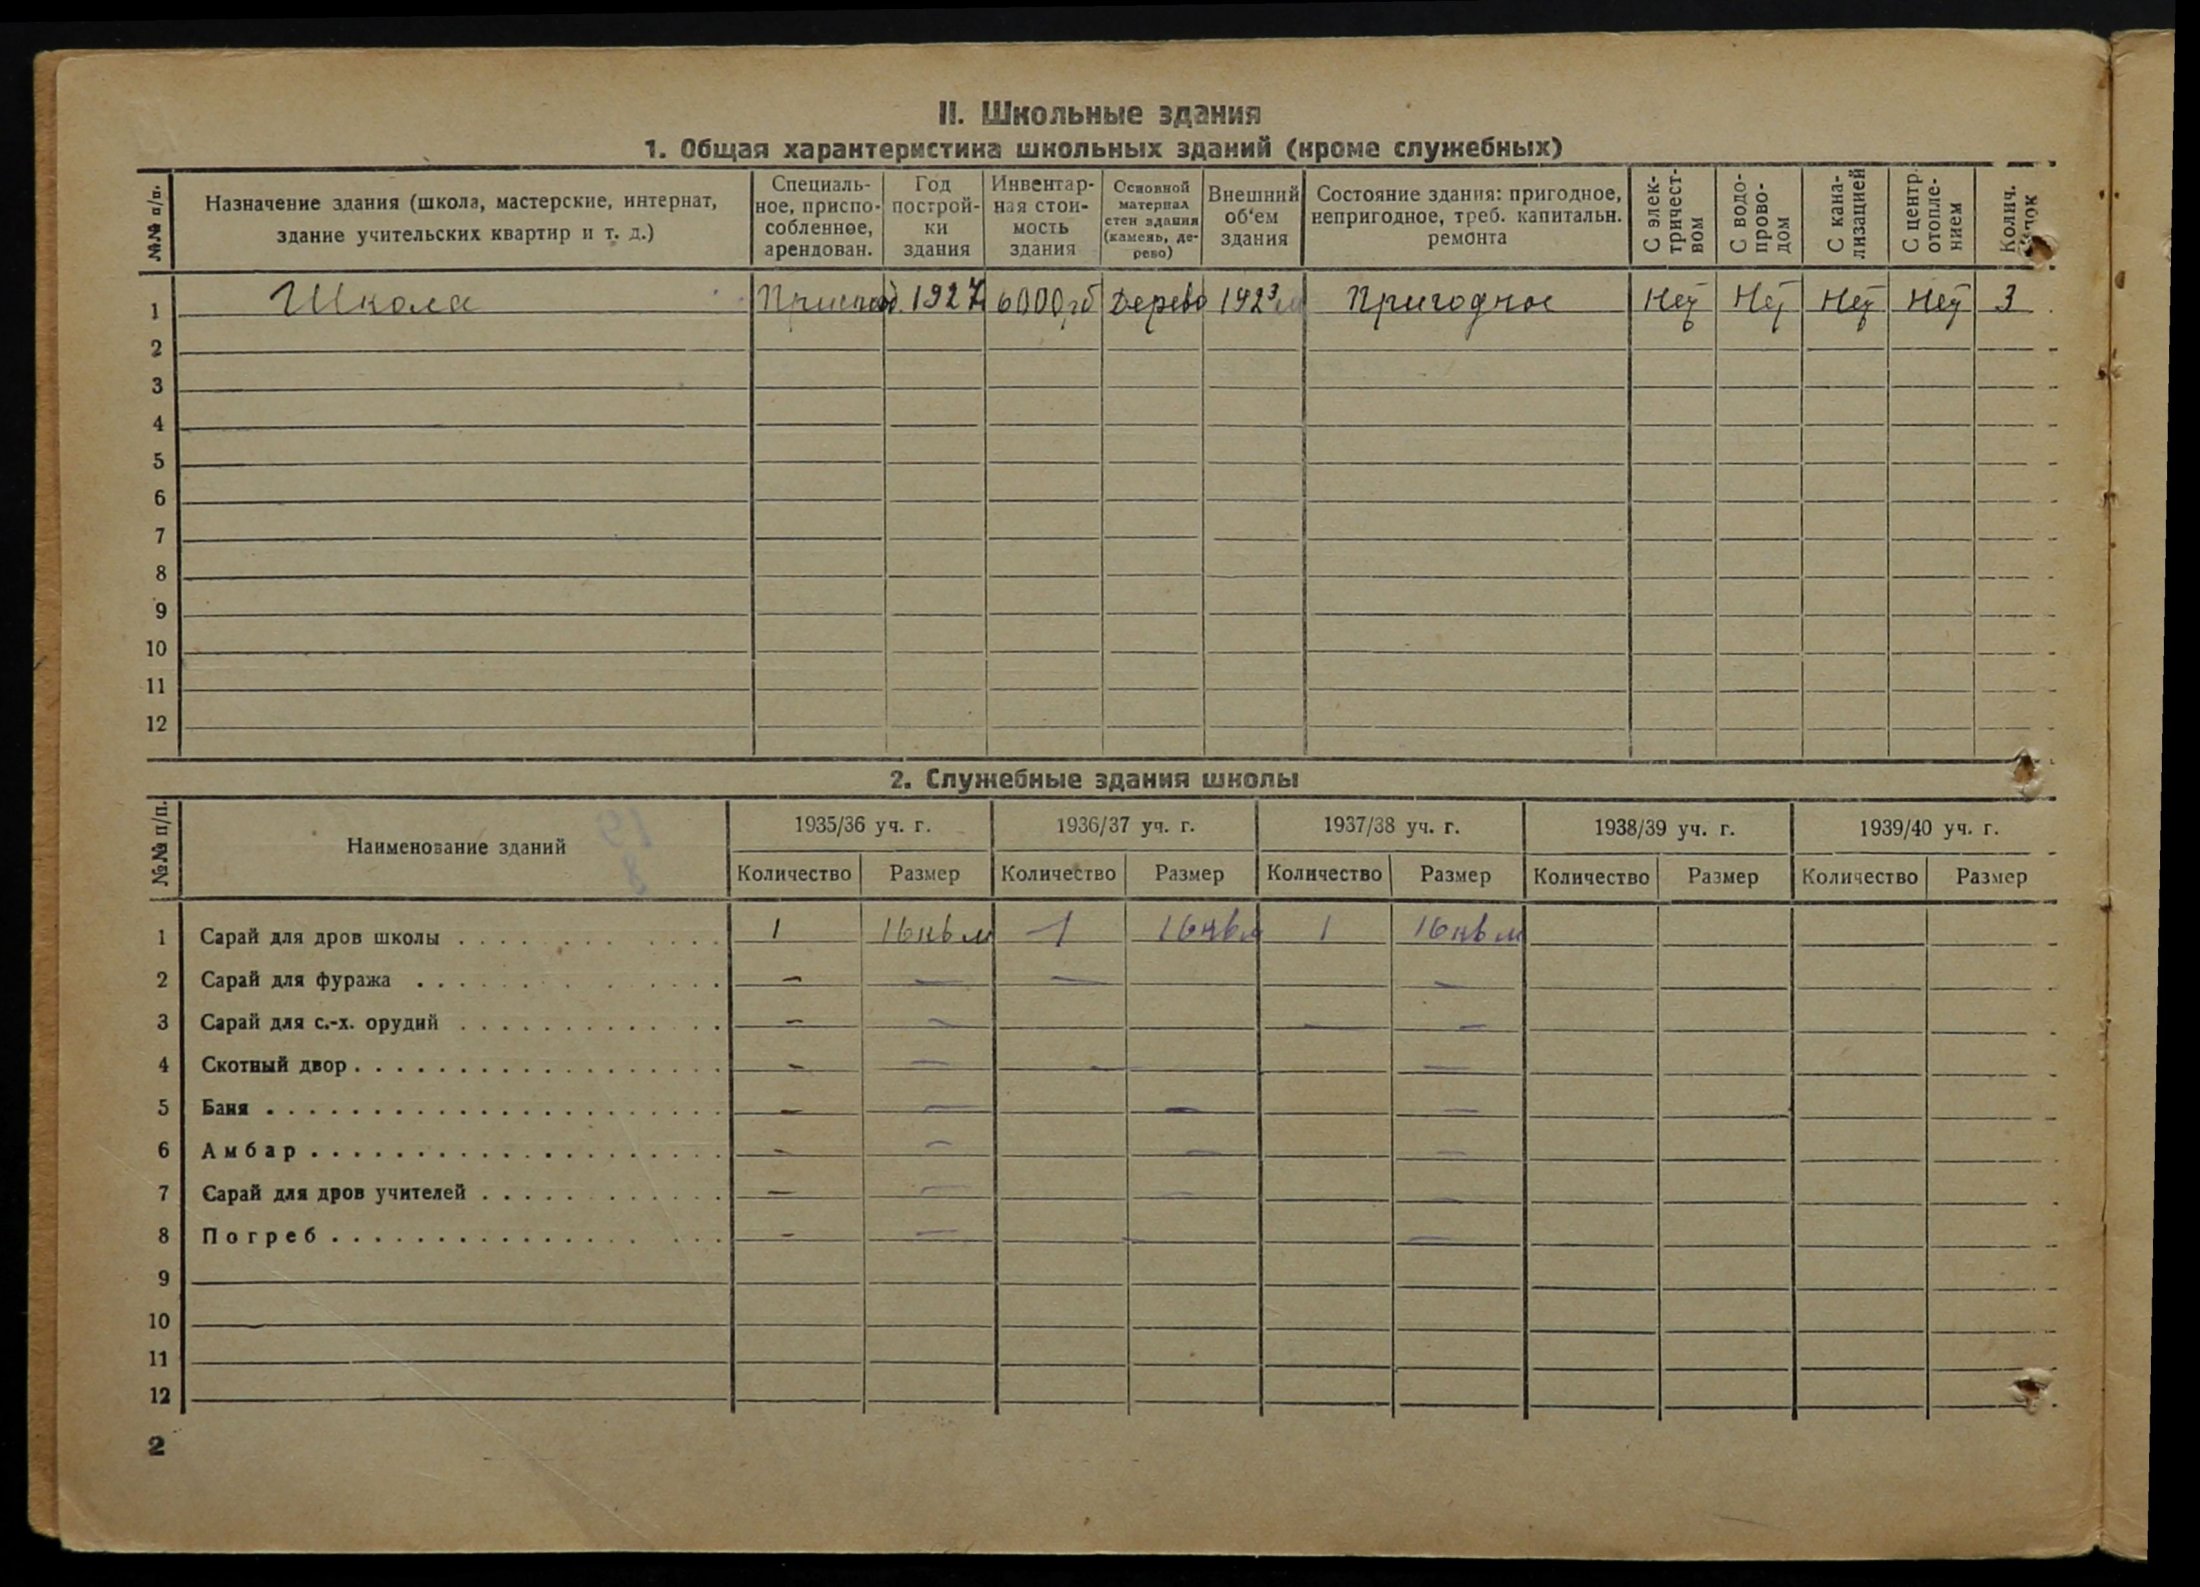 II. Школьные здания
1. Общая характеристика школьных зданий (кроме служебных)
№№ п/п. Назначение здания (школа, мастерские, интернат, здание учительских квартир и т. д.) Специальное, приспособленное, арендован. Год постройки здания Инвентарная стоимость здания Основной материал стен здания (камень, дерево) Внешний об'ем здания Состояние здания: пригодное, непригодное, треб. капитальн. ремонта С электричеством С водопроводом С канализацией С центр. отоплением Колич.
1 Школа 1927 6000 Дерево Пригодное Нет Нет Нет Нет 3
2
3
4
5
6
7
8
9
10
11
12
2. Служебные здания школы
№№ п/п. Наименование зданий 1935/36 уч. г. 1936/37 уч. г. 1937/38 уч. г. 1938/39 уч. г. 1939/40 уч. г.
Количество Размер Количество Размер Количество Размер Количество Размер Количество Размер
1 Сарай для дров школы 1 16 кв м 1 16 кв м 1 16 кв м
2 Сарай для фуража — — — —
3 Сарай для с.-х. орудий — — — —
4 Скотный двор — — — —
5 Баня — — — —
6 Амбар — — — —
7 Сарай для дров учителей — — — —
8 Погреб — — — —
9
10
11
12
2